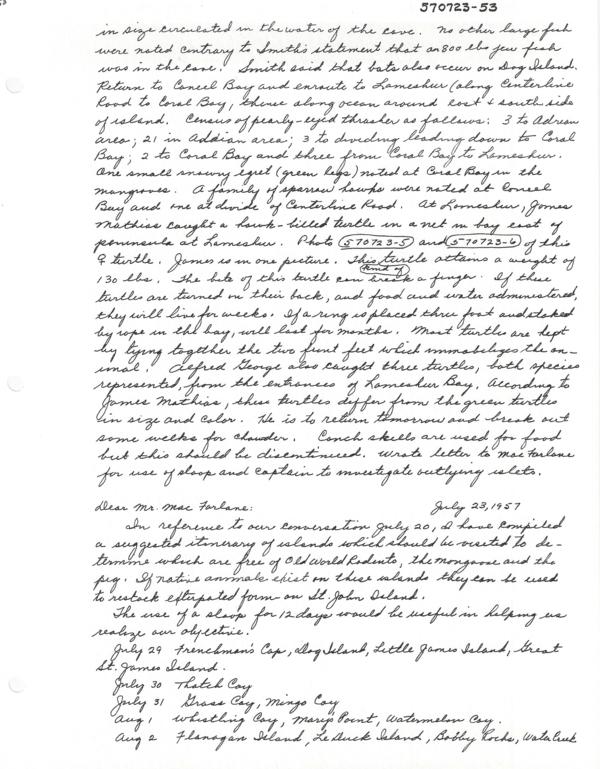 570723-53
in size circulated in the water of the cave. No other large fish
were noted contrary to Smith's statement that an 800 lbs jew fish
was in the cave. Smith said that bats also occur on Dog Island.
Return to Coneel Bay and enroute to Lameshur (along Centerline
Road to Coral Bay, thence along ocean around east & south side
of island. Census of pearly-eyed thrasher as follows: 3 to Adrian
area; 21 in Addian area; 3 to dividing leading down to Coral
Bay; 2 to Coral Bay and three from Coral Bay to Lameshur.
One small snowy egret (green legs) noted at Coral Bay in the
mangroves. A family of sparrow hawks were noted at Coneel
Bay and one at divide of Centerline Road. At Lameshur, James
Mathias caught a hawk-billed turtle in a net in bay east of
peninsula at Lameshur. Photo (570723-5) and (570723-6) of this
♀ turtle. James is in one picture. This turtle attains a weight of
130 lbs. The bite of this kind of turtle can break a finger. If these
turtles are turned on their back, and food and water administered,
they will live for weeks. If a ring is placed thru foot and staked
by rope in the bay, will last for months. Most turtles are kept
by tying together the two front feet which immobilizes the an-
imal. Alfred George also caught three turtles, both species
represented, from the entrances of Lameshur Bay. According to
James Mathias, these turtles differ from the green turtles
in size and color. He is to return tomorrow and break out
some welks for chowder. Conch skells are used for food
but this should be discontinued. Wrote letter to MacFarlane
for use of sloop and captain to investigate outlying islets.
Dear Mr. Mac Farlane: July 23, 1957
In reference to our conversation July 20, I have compiled
a suggested itinerary of islands which should be visited to de-
termine which are free of Old World Rodents, the mongoose and the
pig. If native animals exist on these islands they can be used
to restock extirpated forms on St. John Island.
The use of a sloop for 12 days would be useful in helping us
realize our objective.
July 29 Frenchman's Cap, Dog Island, Little James Island, Great
St. James Island.
July 30 Thatch Cay
July 31 Grass Cay, Mingo Cay
Aug 1 Whistling Cay, Mary's Point, Watermelon Cay.
Aug 2 Flanagan Island, Le Duck Island, Bobby Rocks, Water Creek